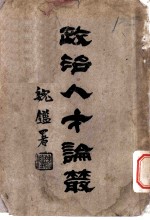 政治人才論叢
魏鑑署